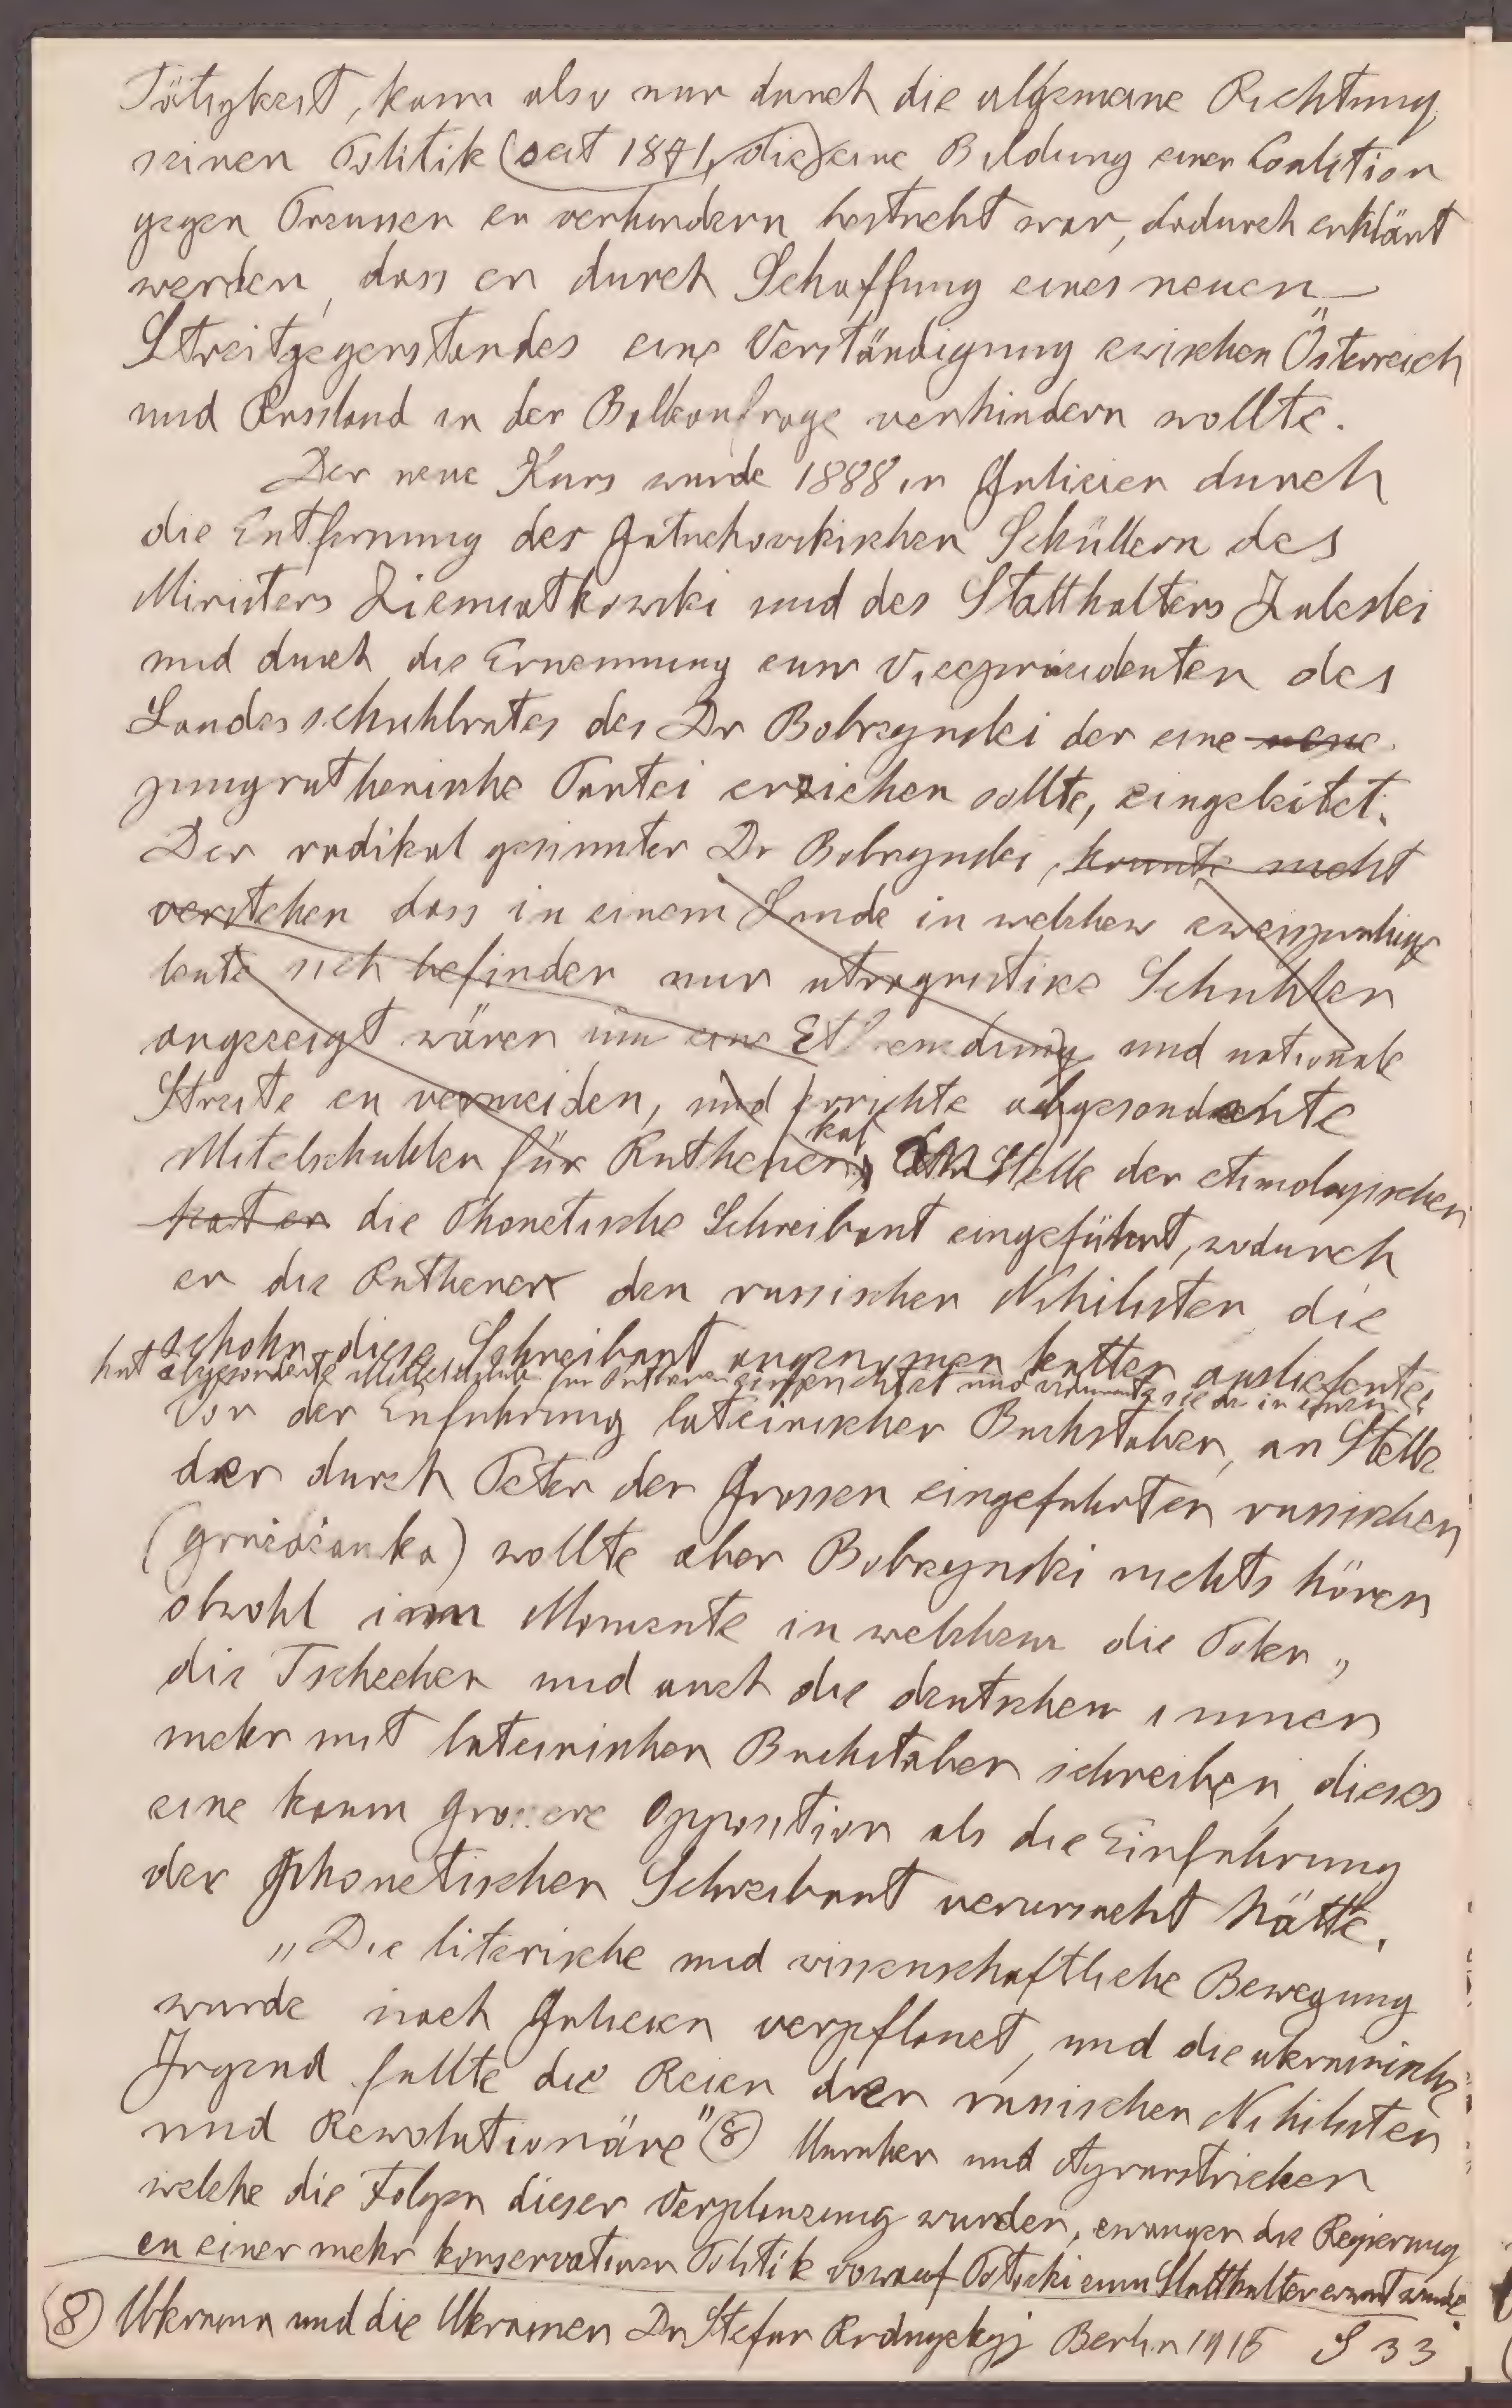 Tätigkeit, kann also nur durch die allgemeine Richtung
seiner Politik (seit 1871, die) eine Bildung einer Coalition
gegen Preussen zu verhindern bestrebt war, dadurch erklärt
werden, dass er durch Schaffung eines neuen
Streitgegenstandes eine Verständigung zwischen Österreich
und Russland in der Balkanfrage verhindern wollte.
Der neue Kurs wurde 1888 in Galizien durch
die Entfernung der Goluchowskischen Schüllern des
Ministers Ziemiatkowski und des Statthalters Zaleski
und durch die Ernennung zum Vicepräsidenten des
Landesschuhlrates des Dr Bobrzynski der eine neue
jungruthenische Partei erziehen sollte, eingeleitet.
Der radikal gesinnter Dr Bobrzynski, konnte nicht
verstehen dass in einem Lande in welchem zweisprachige
leute sich befinden nur utraquistike Schuhlen
angezeigt wären um eine Etfremdung und nationale
Streite zu vermeiden, und errichte abgesonderte
Mitelschuhlen für Ruthenen, hat An Stelle der etimologischen
hat er die Phonetische Schreibart eingeführt, wodurch
er die Ruthenen den russischen Nihilisten die
schohn diese Schreibart angenomen hatten auslieferte,
hat abgesonderte Mittelschuhlen für Ruthenen eingerichtet und
Vor der Enfuhrung lateinischer Buchstaben, an Stelle
der durch Peter der Grossen eingefuhrten russischen
(graždanka) wollte aber Bobrzynski nichts hören
obwohl im Momente in welchem die Polen,
die Tschechen und auch die deutschen immer
mehr mit lateinischen Buchstaben schreiben, dieses
eine kaum grossere Opposition als die Einfuhrung
der Phonetischen Schreibart verursacht hätte.
„Die literische und wissenschaftliche Bewegung
wurde nach Galizien verpflanzt, und die ukrainische
Jugend fullte die Reien der russischen Nihilisten
und Rewolutionäre" (8) Unruhen und Agrarstricken
welche die Folgen dieser Verplanzung wurden, zwangen die Regierung
zu einer mehr konservativen Politik worauf Potocki zum Statthalter ernant wurde
(8) Ukraina und die Ukrainen Dr Stefan Rudnyckyj Berlin 1915 S 33